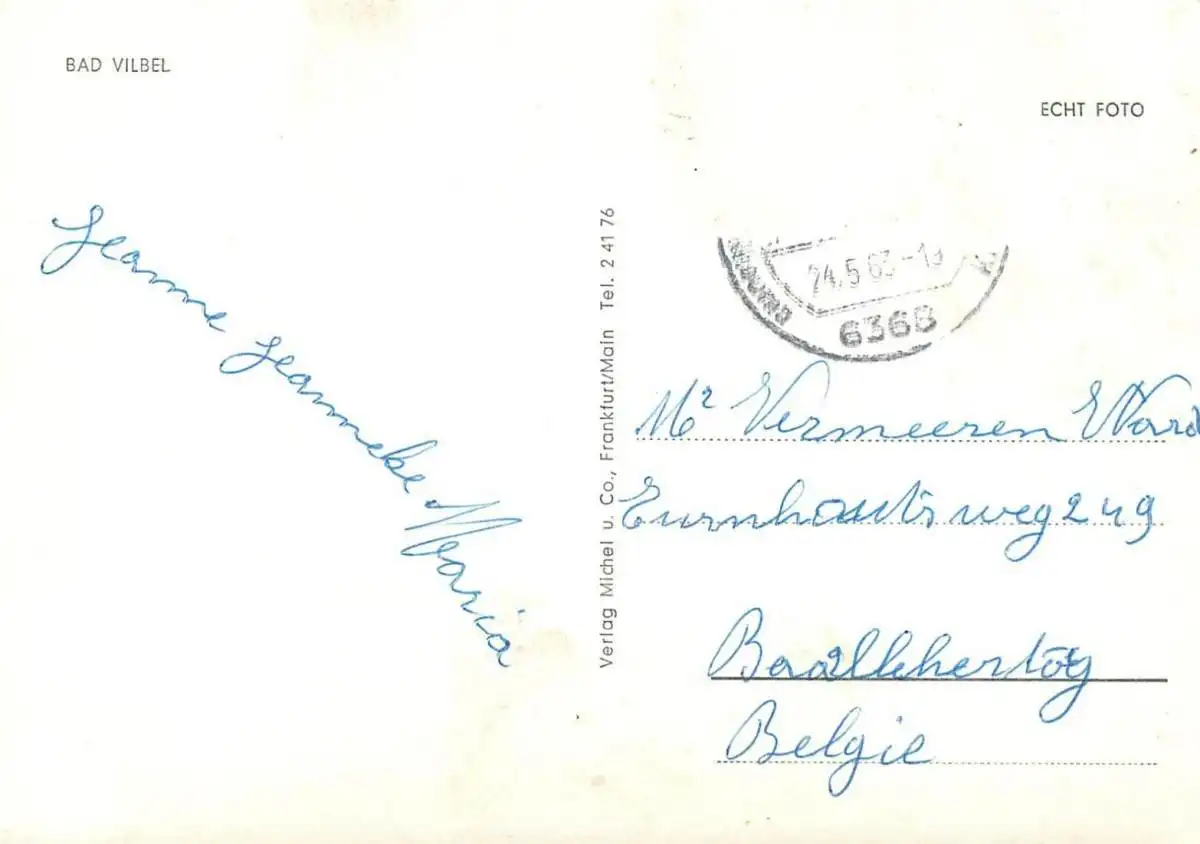 BAD VILBEL
ECHT FOTO
Jeanne Jeanneke Maria
Verlag Michel u. Co., Frankfurt/Main Tel. 2 41 76
24.5.63-19
6368
Mr Vermeeren Ward
Turnhoutsweg 249
Baallehertog
Belgie